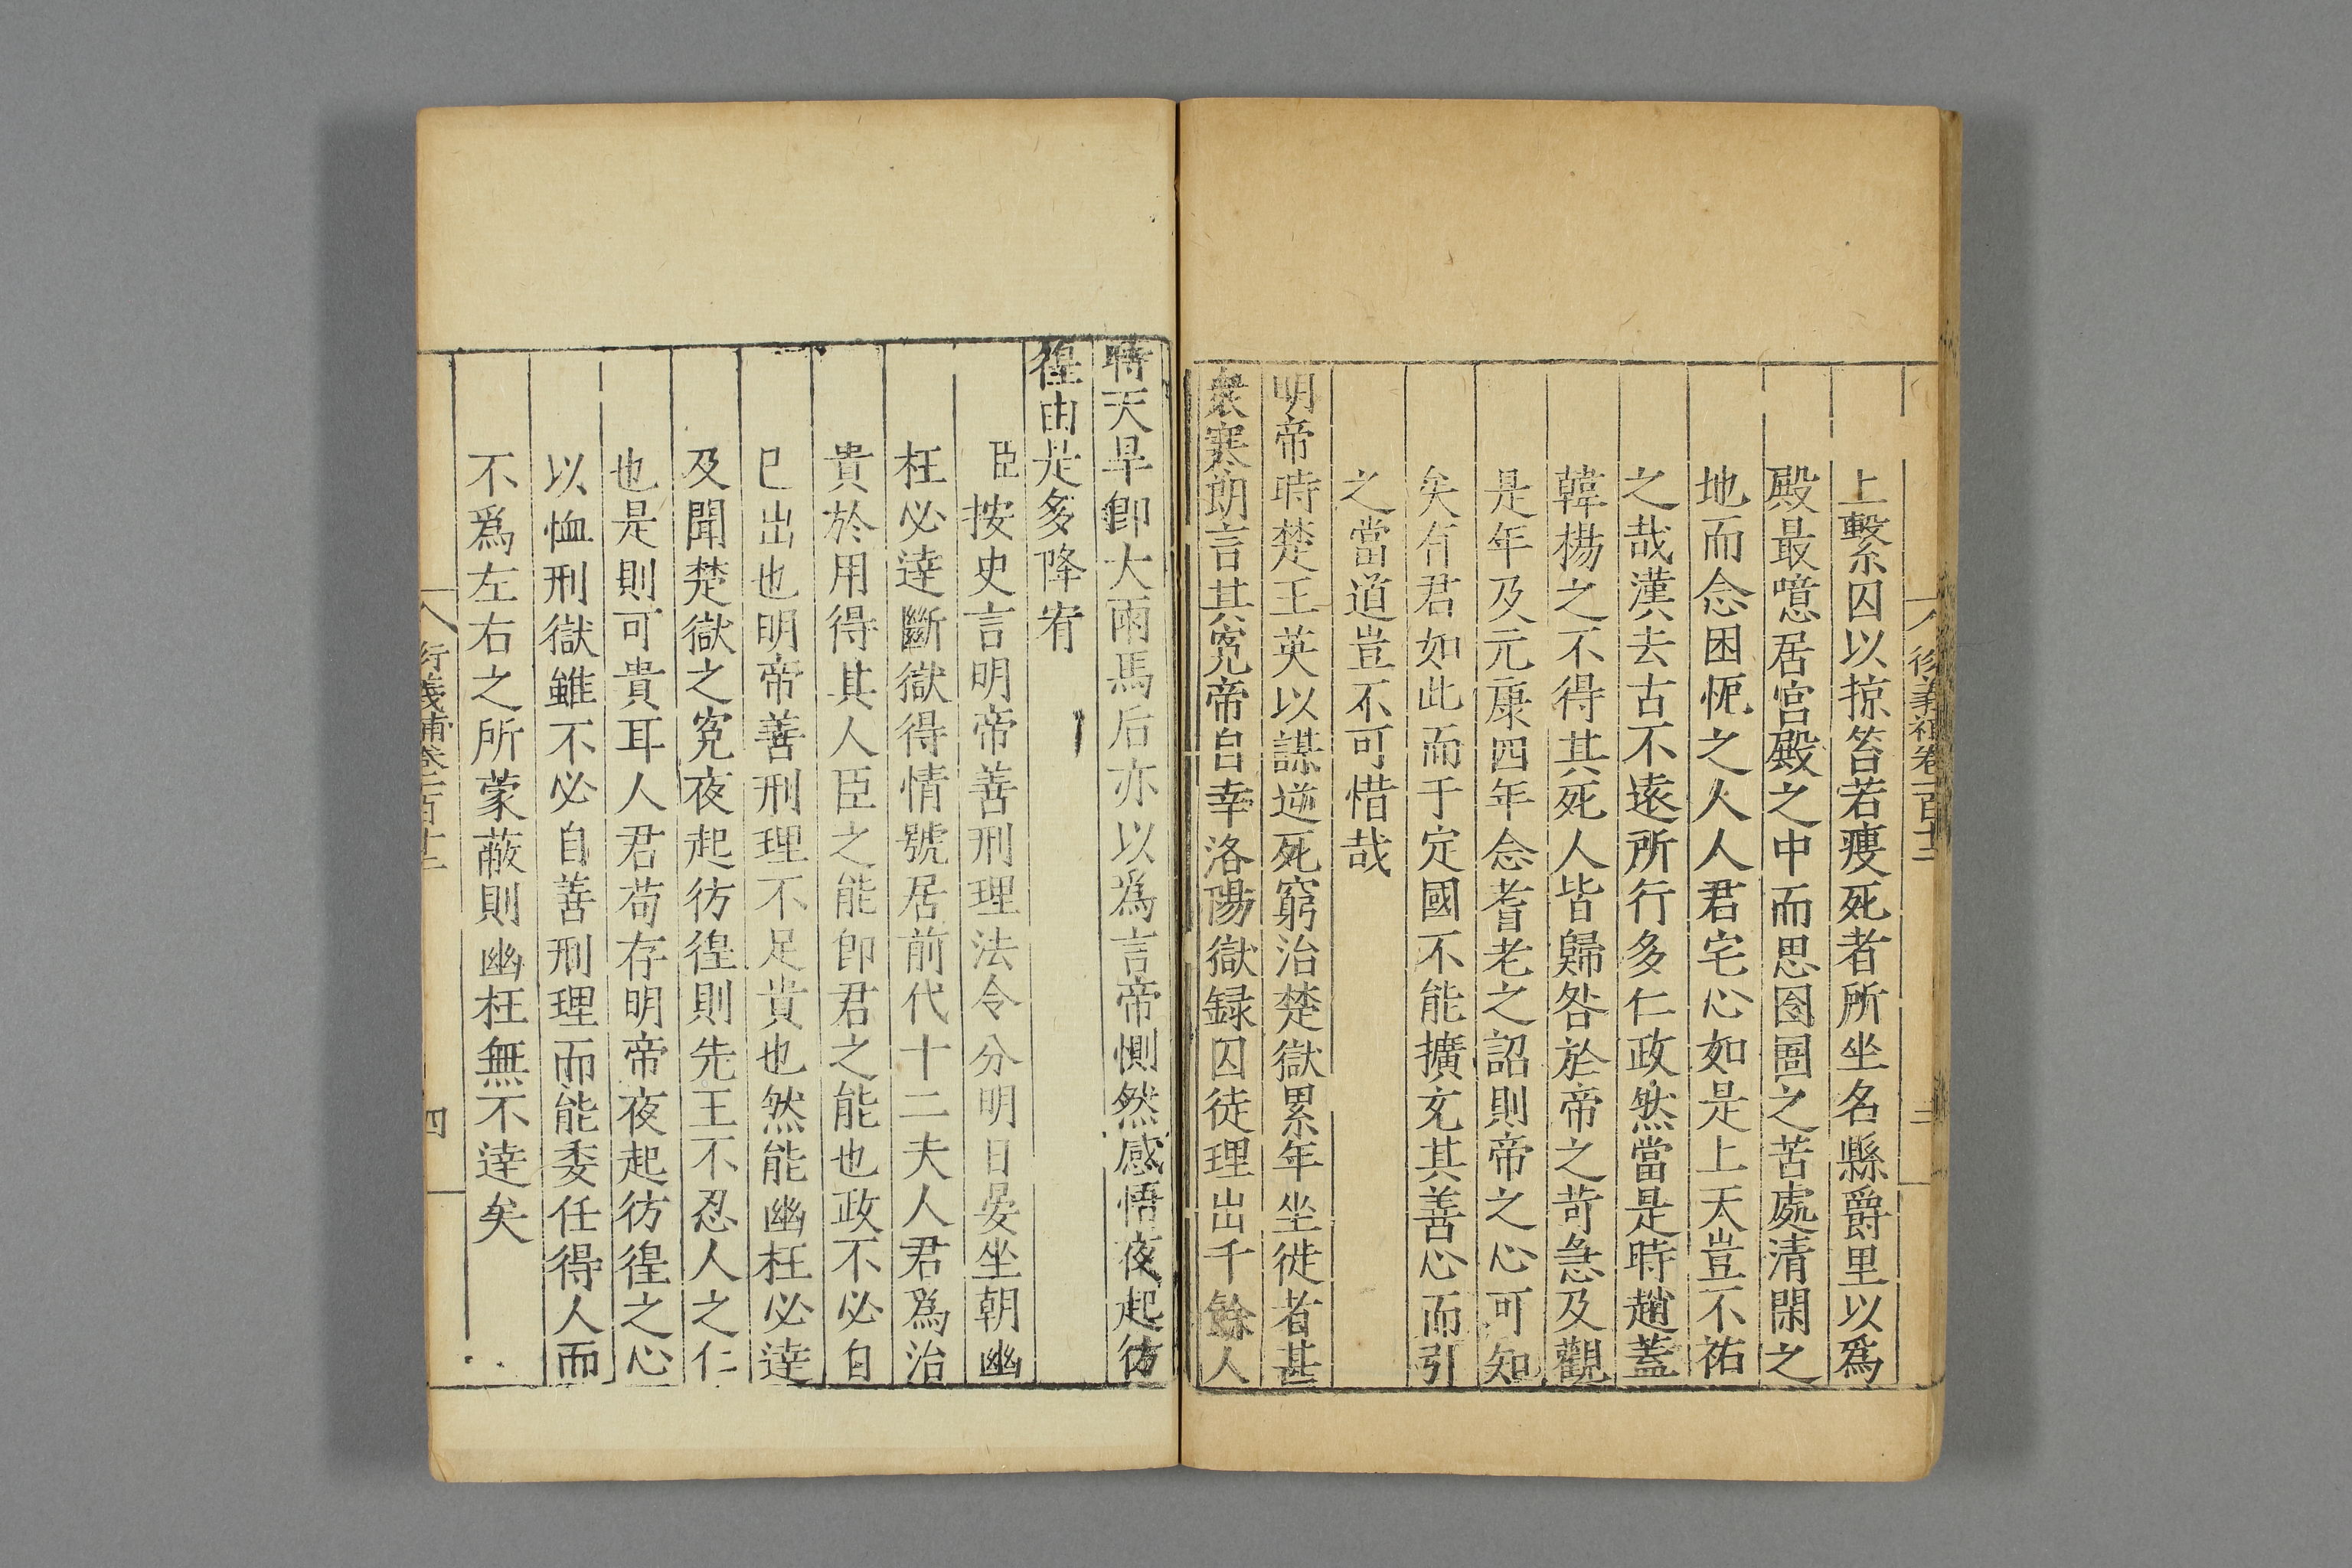 上繫囚以掠笞若瘐死者所坐名縣爵里以爲
殿最噫居宮殿之中而思囹圄之苦處清閑之
地而念困軛之人人君宅心如是上天豈不祐
之哉漢去古不逺所行多仁政然當是時趙蓋
韓楊之不得其死人皆歸咎於帝之苛急及觀
是年及元康四年念耆老之詔則帝之心可知
矣有君如此而于定國不能擴充其善心而引
之當道豈不可惜哉
明帝時楚王英以謀逆死窮治楚獄累年坐徙者甚
衆寒朗言其寃帝自幸洛陽獄録囚徒理出千餘人
時天旱即大雨馬后亦以爲言帝惻然感悟夜起彷
徨由是多降宥
臣按史言明帝善刑理法令分明日晏坐朝幽
枉必達斷獄得情號居前代十二夫人君爲治
貴於用得其人臣之能即君之能也政不必自
已出也明帝善刑理不足貴也然能幽枉必達
及聞楚獄之寃夜起彷徨則先王不忍人之仁
也是則可貴耳人君苟存明帝夜起彷徨之心
以恤刑獄雖不必自善刑理而能委任得人而
不爲左右之所蒙蔽則幽枉無不達矣
行義補卷一百十二
四